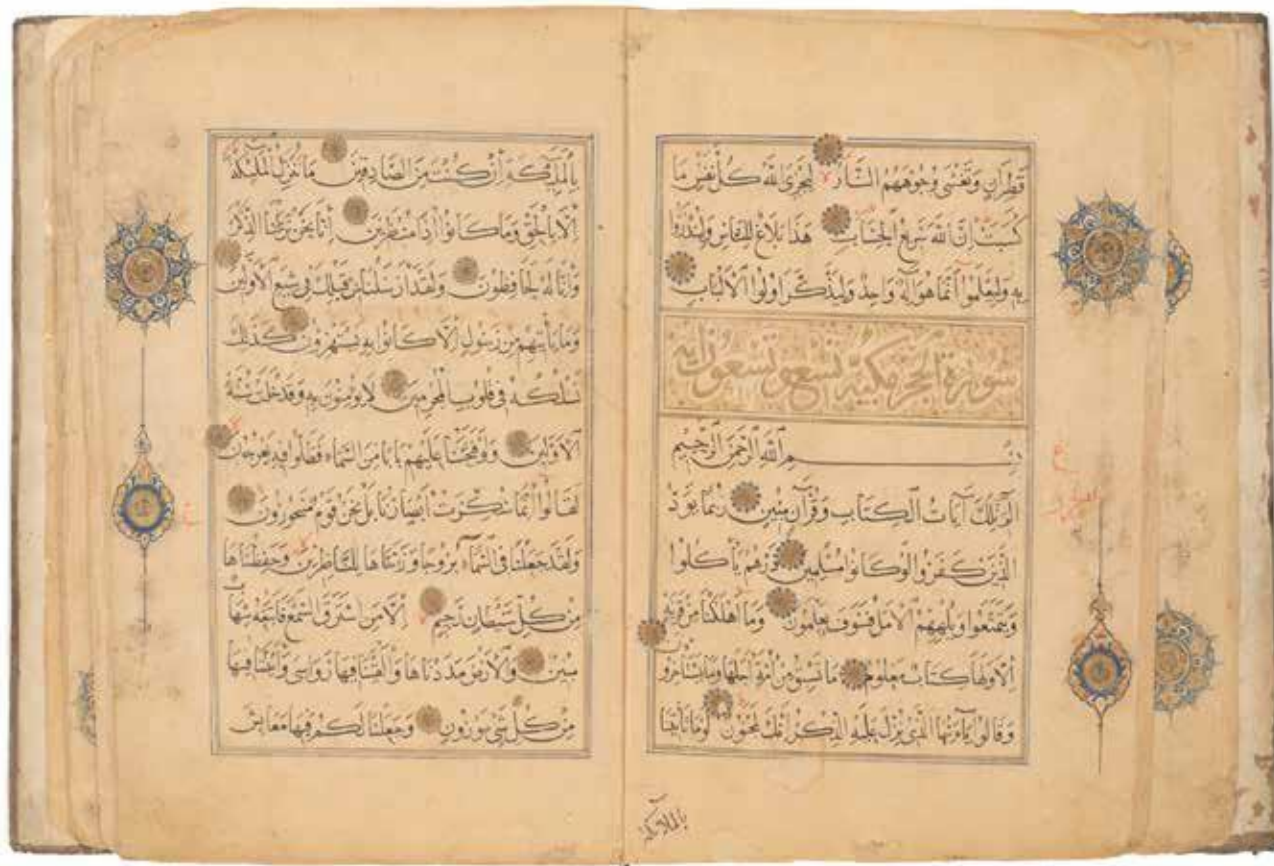 قَطِرَانٍ وَتَغْشَى وُجُوهَهُمُ النَّارُ لِيَجْزِيَ اللّٰهُ كُلَّ نَفْسٍ مَا
كَسَبَتْ اِنَّ اللّٰهَ سَرِيعُ الْحِسَابِ هَذَا بَلَاغٌ لِلنَّاسِ وَلِيُنْذَرُوا
بِهِ وَلِيَعْلَمُوا اَنَّمَا هُوَ اِلَهٌ وَاحِدٌ وَلِيَذَّكَّرَ اُولُوا الْاَلْبَابِ
سورة الحجر مكية تسع وتسعون اية
بِسْمِ اللّٰهِ الرَّحْمَنِ الرَّحِيمِ
الر تِلْكَ آيَاتُ الْكِتَابِ وَقُرْآنٍ مُبِينٍ رُبَمَا يَوَدُّ
الَّذِينَ كَفَرُوا لَوْ كَانُوا مُسْلِمِينَ ذَرْهُمْ يَأْكُلُوا
وَيَتَمَتَّعُوا وَيُلْهِهِمُ الْاَمَلُ فَسَوْفَ يَعْلَمُونَ وَمَا اَهْلَكْنَا مِنْ قَرْيَةٍ
اِلَّا وَلَهَا كِتَابٌ مَعْلُومٌ مَا تَسْبِقُ مِنْ اُمَّةٍ اَجَلَهَا وَمَا يَسْتَأْخِرُونَ
وَقَالُوا يَا اَيُّهَا الَّذِي نُزِّلَ عَلَيْهِ الذِّكْرُ اِنَّكَ لَمَجْنُونٌ لَوْمَا تَأْتِينَا
بالملائكة
بِالْمَلَائِكَةِ اِنْ كُنْتَ مِنَ الصَّادِقِينَ مَا نُنَزِّلُ الْمَلَئِكَةَ
اِلَّا بِالْحَقِّ وَمَا كَانُوا اِذًا مُنْظَرِينَ اِنَّا نَحْنُ نَزَّلْنَا الذِّكْرَ
وَاِنَّا لَهُ لَحَافِظُونَ وَلَقَدْ اَرْسَلْنَا مِنْ قَبْلِكَ فِي شِيَعِ الْاَوَّلِينَ
وَمَا يَأْتِيهِمْ مِنْ رَسُولٍ اِلَّا كَانُوا بِهِ يَسْتَهْزِءُونَ كَذَلِكَ
نَسْلُكُهُ فِي قُلُوبِ الْمُجْرِمِينَ لَا يُؤْمِنُونَ بِهِ وَقَدْ خَلَتْ سُنَّةُ
الْاَوَّلِينَ وَلَوْ فَتَحْنَا عَلَيْهِمْ بَابًا مِنَ السَّمَاءِ فَظَلُّوا فِيهِ يَعْرُجُونَ
لَقَالُوا اِنَّمَا سُكِّرَتْ اَبْصَارُنَا بَلْ نَحْنُ قَوْمٌ مَسْحُورُونَ
وَلَقَدْ جَعَلْنَا فِي السَّمَاءِ بُرُوجًا وَزَيَّنَّاهَا لِلنَّاظِرِينَ وَحَفِظْنَاهَا
مِنْ كُلِّ شَيْطَانٍ رَجِيمٍ اِلَّا مَنِ اسْتَرَقَ السَّمْعَ فَاَتْبَعَهُ شِهَابٌ
مُبِينٌ وَالْاَرْضَ مَدَدْنَاهَا وَاَلْقَيْنَا فِيهَا رَوَاسِيَ وَاَنْبَتْنَا فِيهَا
مِنْ كُلِّ شَيْءٍ مَوْزُونٍ وَجَعَلْنَا لَكُمْ فِيهَا مَعَايِشَ